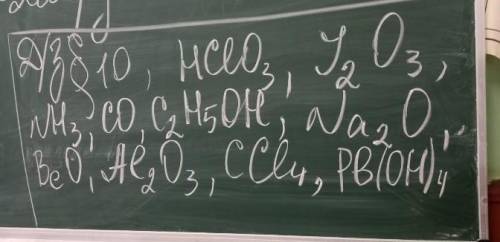 Д/з § 10, HClO₃, J₂O₃,
NH₃, CO, C₂H₅OH, Na₂O,
BeO, Al₂O₃, CCl₄, PB(OH)₄